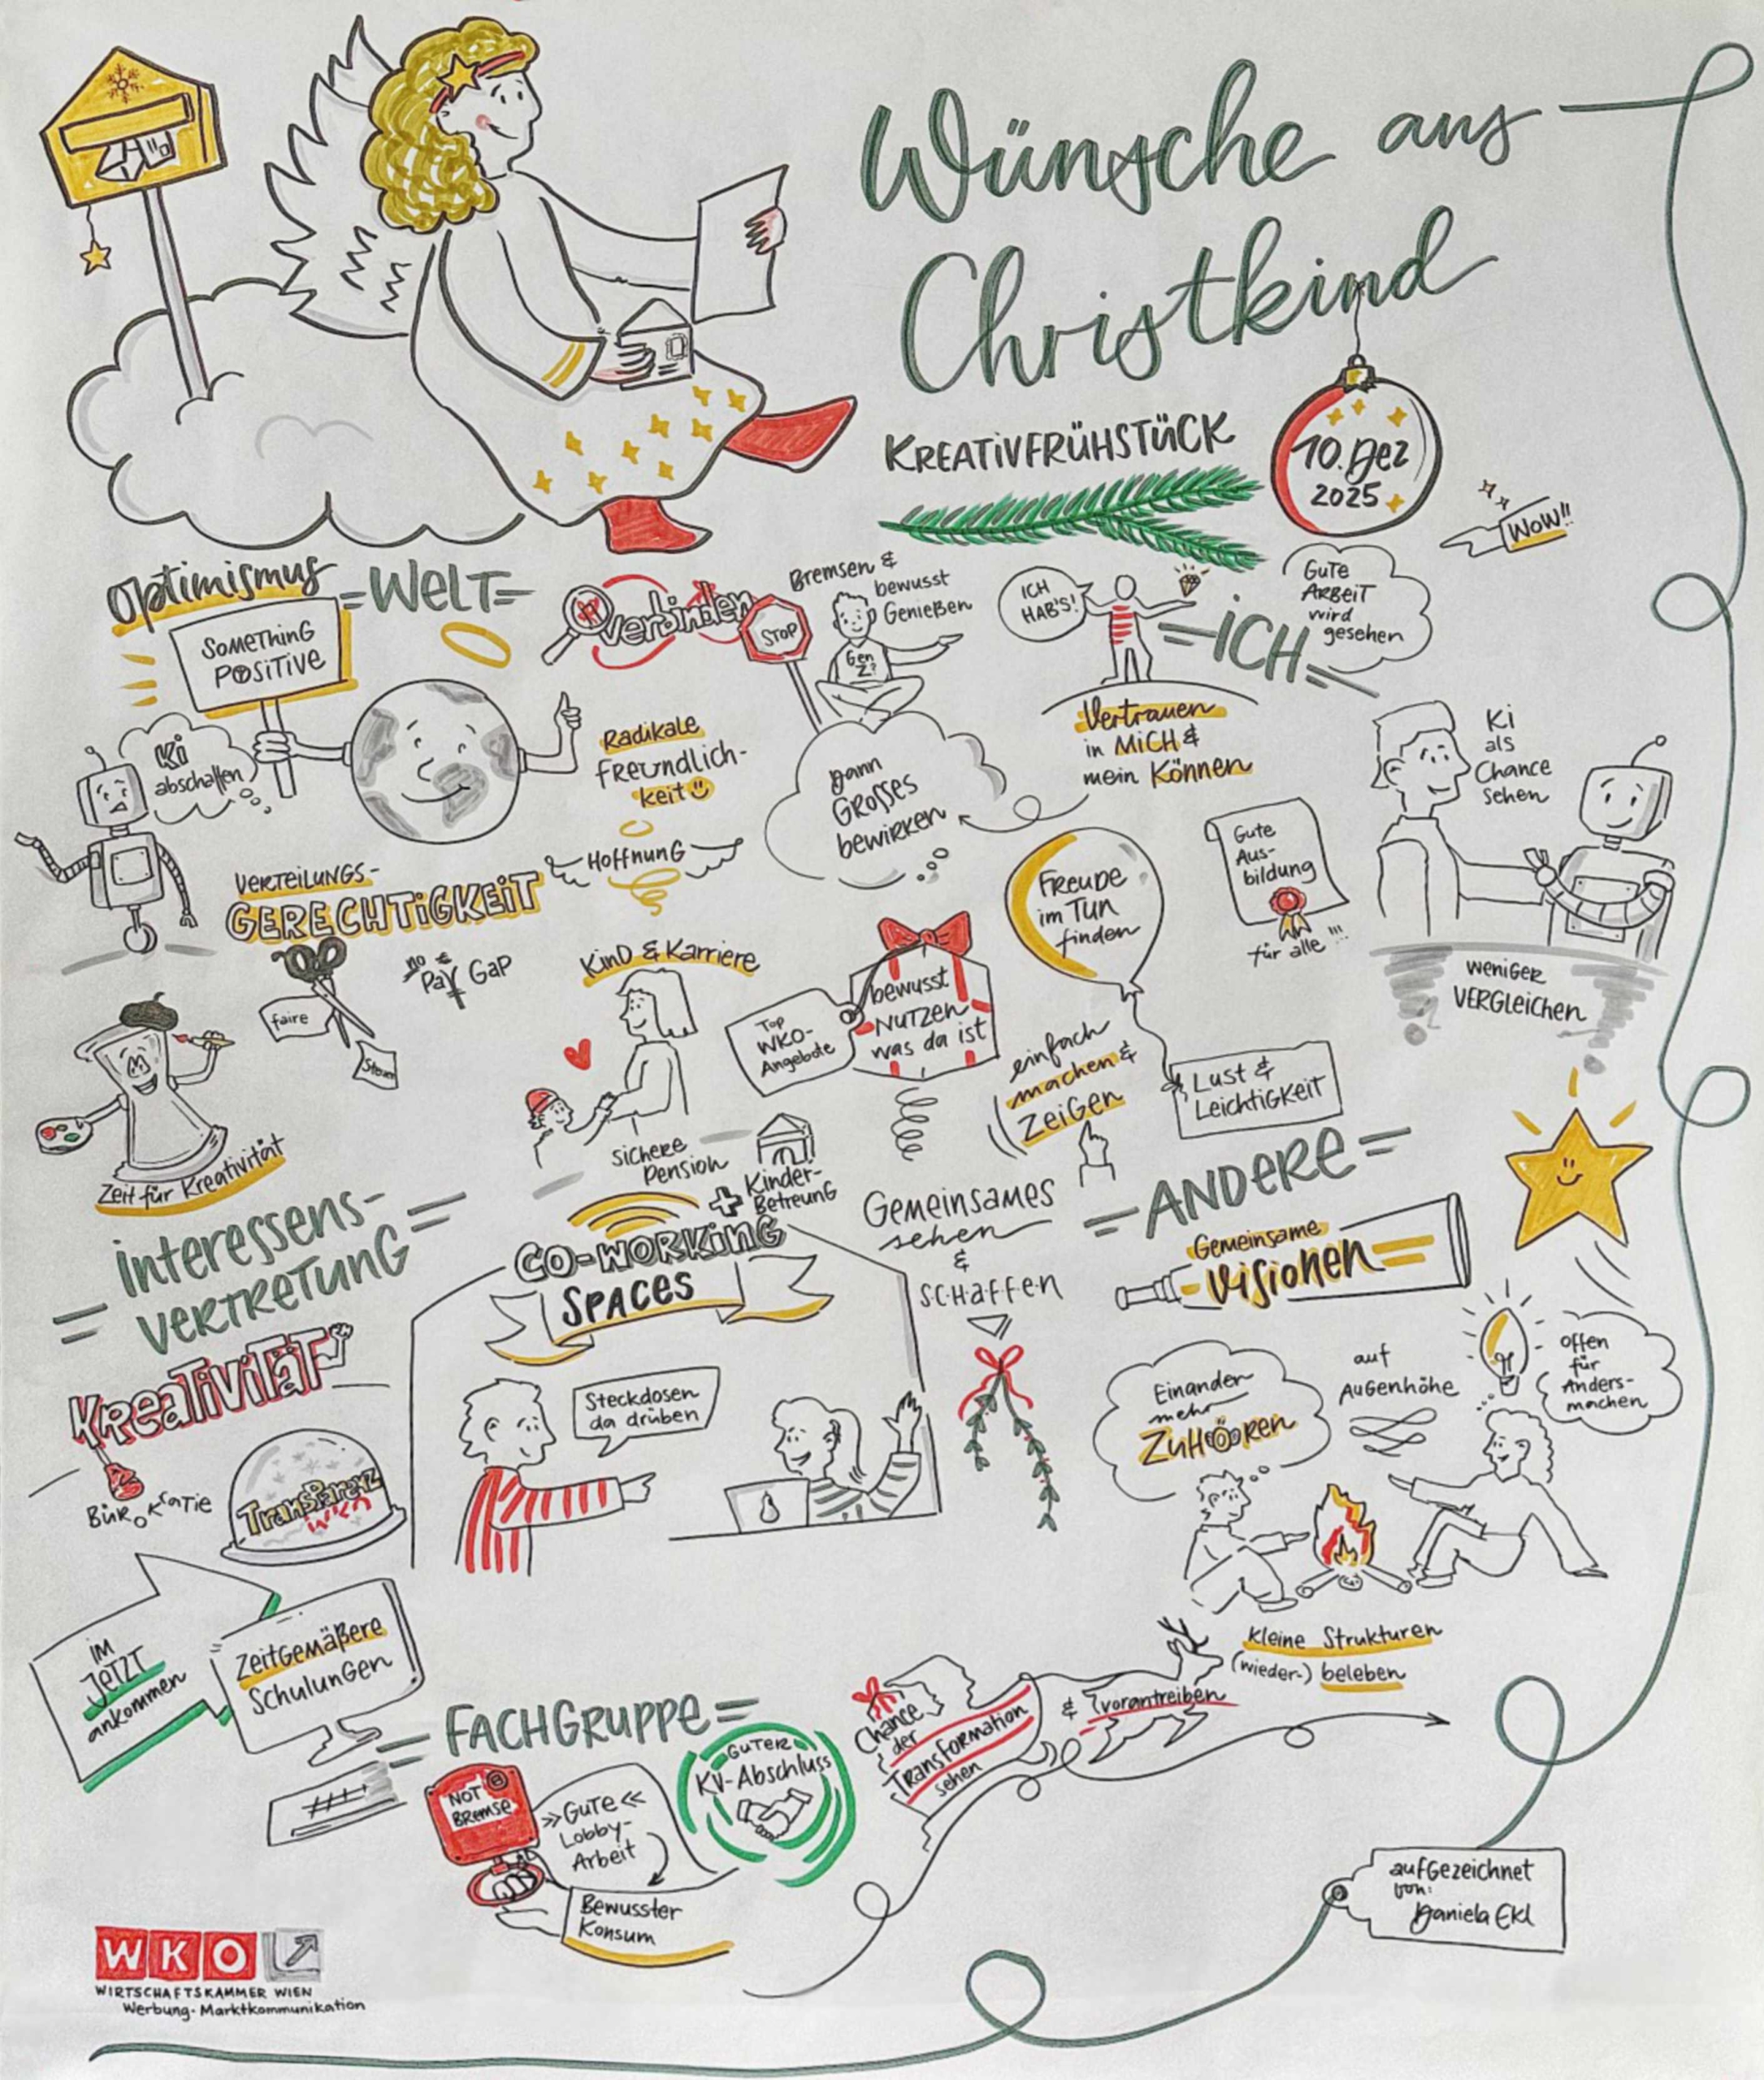 Wünsche ans
Christkind
KREATiVFRÜHSTÜCK
10. Dez
2025
WOW!!
Optimismus
=WELT=
SOMETHinG
POSiTiVE
verbinden
STOP
Bremsen &
bewusst
Genießen
Gen
Z?
ICH
HAB'S!
=ICH=
GUTE
ARBEiT
wird
gesehen
Ki
abschaffen
Radikale
FREUNDLiCH-
keit
Hoffnung
dann
GROSSES
bewirken
Vertrauen
in MiCH &
mein Können
Ki
als
Chance
sehen
VERTEiLUNGS-
GERECHTiGKEiT
faire
Steuer
no €
PaY GaP
KinD & Karriere
sichere
Pension
Kinder-
Betreung
Top
WKO-
Angebote
bewusst
NUTZEN
was da ist
FREUDE
im TUN
finden
Lust &
LEiCHTiGKEiT
einfach
machen &
ZEiGEN
Gute
Aus-
bildung
für alle !!!
WENiGER
VERGLEiCHEN
Zeit für Kreativität
=interessens-
VERTRETUNG=
KREATiViTÄT
BÜROKRATIE
TRANSPARENZ
WKO
CO-WORKiNG
SPACES
Steckdosen
da drüben
GEMEINSAMES
sehen
&
SCHAFFEN
=ANDERE=
GEMEiNSAME
ViSiONEN
Einander
mehr
ZUHÖREN
auf
AUGENHÖHE
offen
für
Anders-
machen
iM
JETZT
ankommen
ZEiTGEMÄßERE
SCHULUNGEN
=FACHGRUPPE=
NOT
BREMSE
»GUTE«
LOBBY-
ARBEiT
Bewusster
Konsum
GUTER
KV-Abschluss
Chance
der
TRANSFORMATiON
sehen
& vorantreiben
Kleine Strukturen
(wieder-) beleben
aufGezeichnet
von:
Daniela EKl
WKO
WIRTSCHAFTSKAMMER WIEN
Werbung-Marktkommunikation